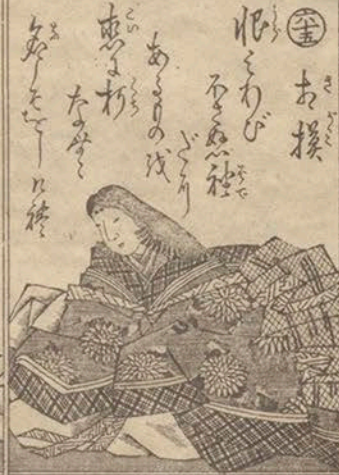 六十五
相摸
恨みわび
ほさぬ袖
だに
あるものを
恋に朽
なむ
名こそをしけれ